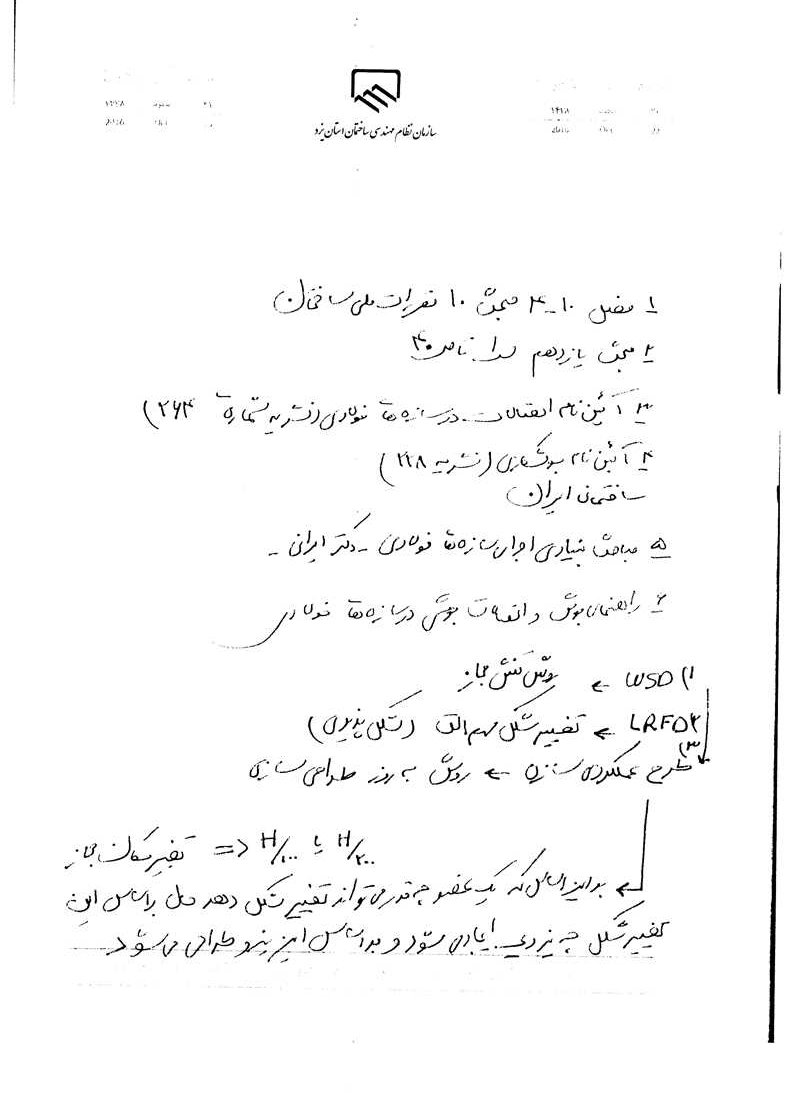 سازمان نظام مهندسی ساختمان استان یزد
۱ـ فصل ۱۰ـ۴ مبحث ۱۰ مقررات ملی ساختمان
۲ـ مبحث یازدهم
۳ـ آئین نامه اتصالات در سازه ها فولادی (نشریه شماره ۲۶۴)
۴ـ آئین نامه جوشکاری (نشریه ۲۲۸)
ساختمانی ایران
۵ـ مباحث بنیادی اجرای سازه ها فولادی ـ دکتر ایرانی ـ
۶ـ راهنمای جوش و اتصالات جوشی در سازه ها فولادی
۱) WSD ← روش تنش مجاز
۲) LRFD ← تغییر شکل مهم است (شکل پذیری)
۳) طرح عملکردی سازه ← روش به روز طراحی سازی
H/۲۰۰ یا H/۱۰۰ <= تغییر مکان مجاز
← بر این اساس که یک عضو چه قدر می تواند تغییر شکل دهد حال براساس این
تغییر شکل چه نیرویی ایجاد می شود و براساس این نیرو طراحی می شود